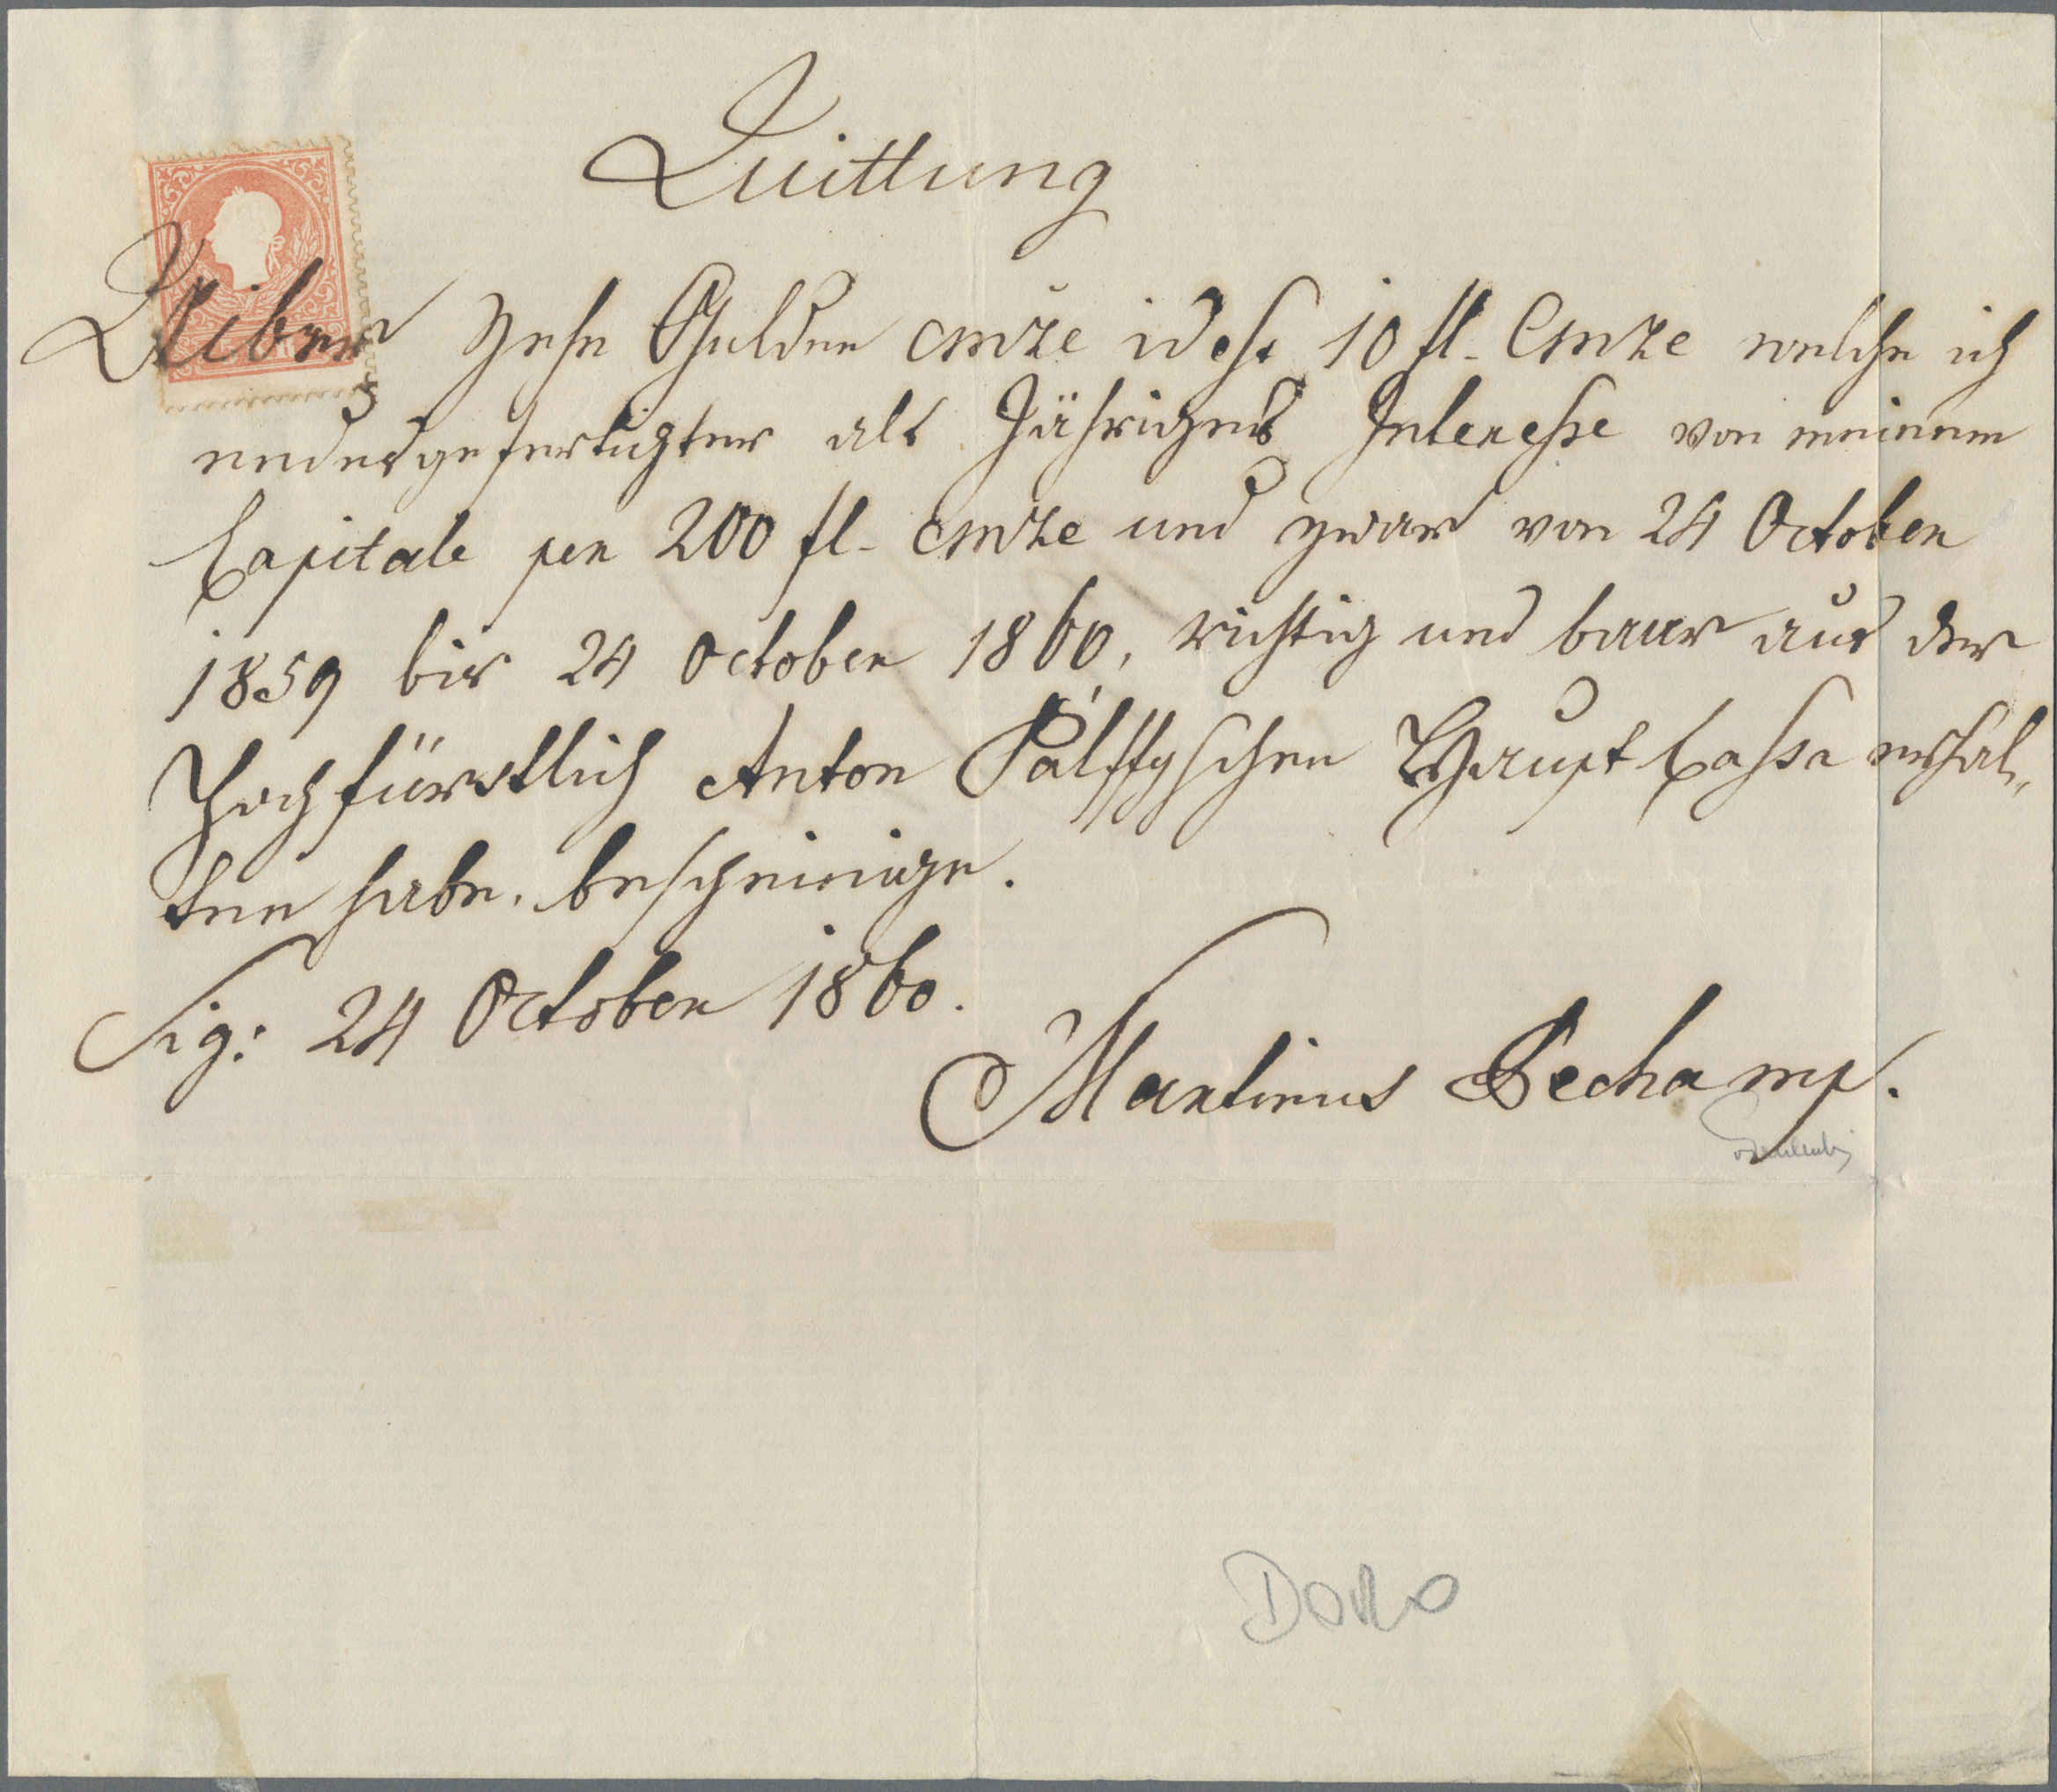 Quittung
Uiber Zehn Gulden Cmze idest 10 fl. Cmze welche ich
endesgefertigter als Jähriges Interesse von meinem
Capitale per 200 fl. Cmze und zwar von 24 October
1859 bis 24 October 1860, richtig und baar aus der
Hochfürstlich Anton Pálffyschen Haupt Casse erhal„
ten habe, bescheinige.
Sig: 24 October 1860.
Martinus Bechamp.
DORO